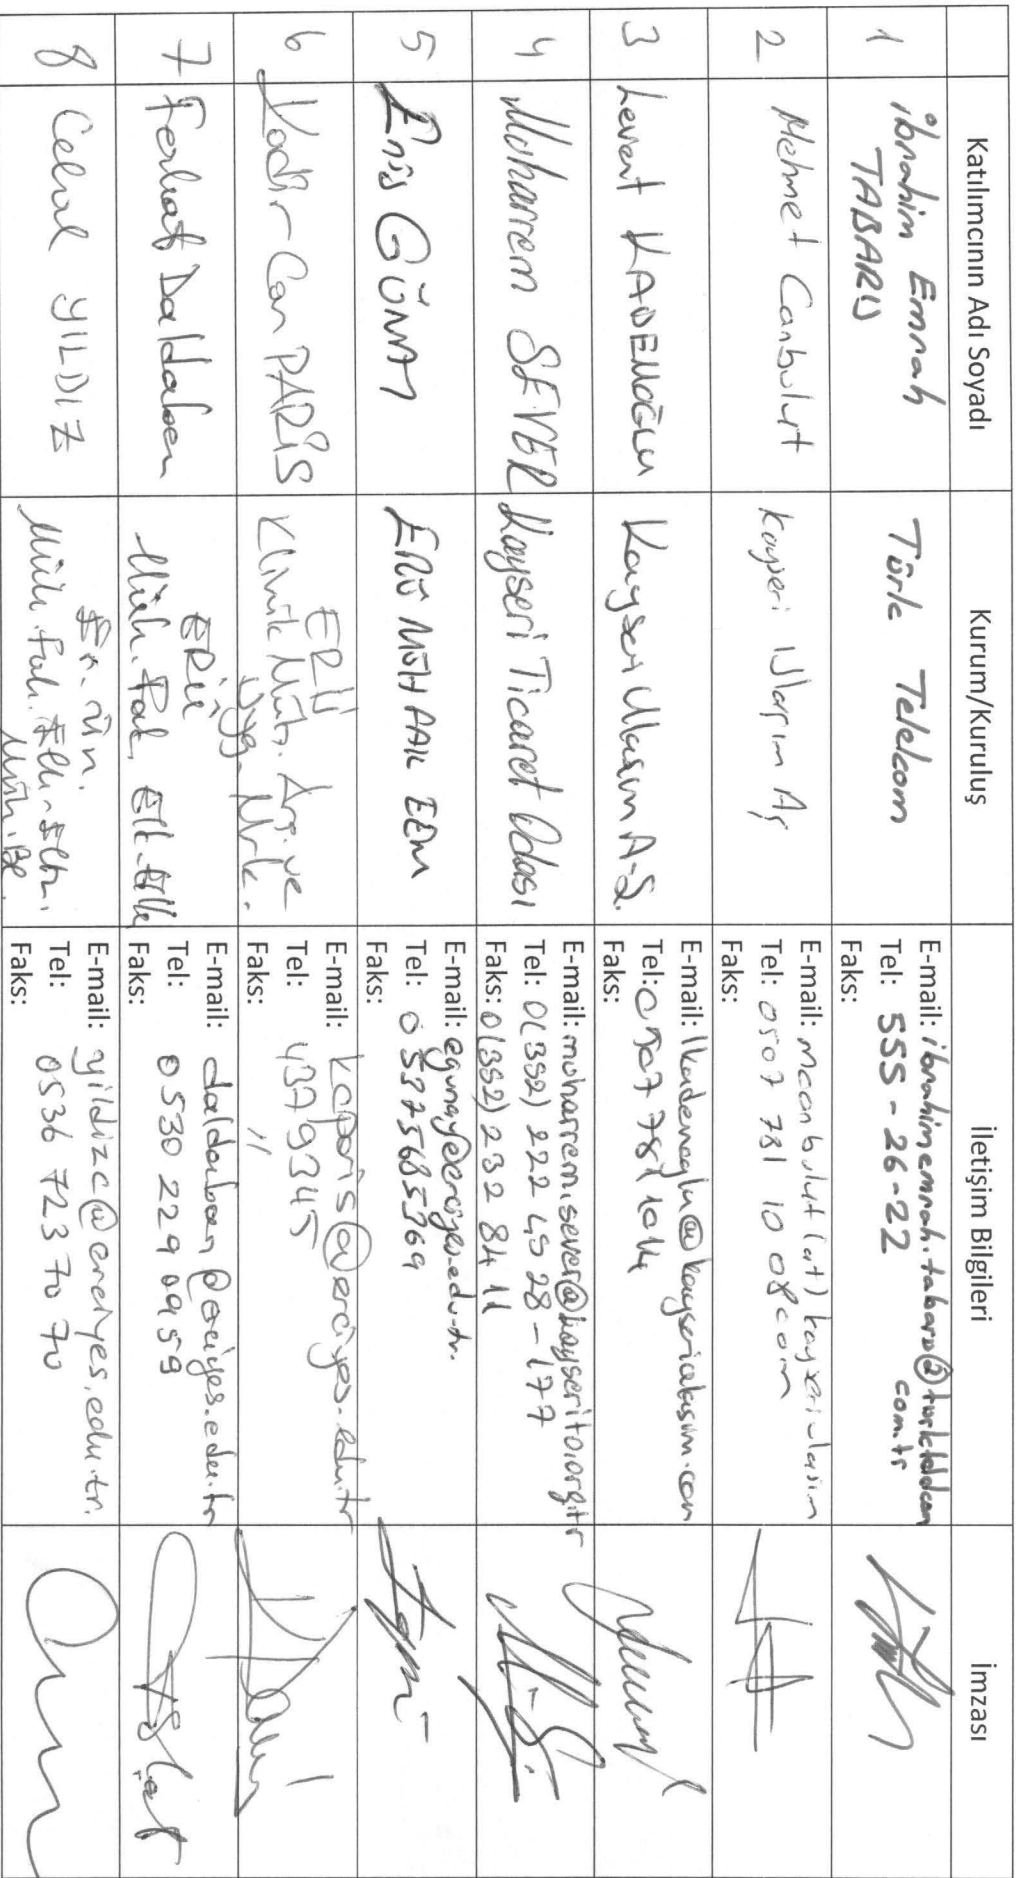 Katılımcının Adı Soyadı
Kurum/Kuruluş
İletişim Bilgileri
İmzası
1
ibrahim Emrah
TABARU
Türk Telekom
E-mail: ibrahimemrah.tabaru@turktelekom
com.tr
Tel: 555-26-22
Faks:
2
Mehmet Canbulut
Kayseri Ulaşım Aş
E-mail: mcanbulut (at) kayseriulasim
com
Tel: 0507 781 10 08
Faks:
3
Levent KADEMOĞLU
Kayseri Ulaşım A.Ş.
E-mail: lkademoglu@kayseriulasim.com
Tel: 0507 781 1014
Faks:
4
Muharrem SEVER
Kayseri Ticaret Odası
E-mail: muharrem.sever@kayserito.org.tr
Tel: 0(352) 222 45 28-177
Faks: 0(352) 232 84 11
5
Enis GÜNAY
ERÜ MÜH FAK EEM
E-mail: egunay@erciyes.edu.tr.
Tel: 05375685369
Faks:
6
Kadir-Can PARİS
ERÜ
Klinik Müh. Arş. ve
Uyg. Mrk.
E-mail: kcparis@erciyes.edu.tr
Tel: 4379345
Faks: "
7
Ferhat Daldaban
ERÜ
Müh. Fak. Elk-Elk
E-mail: daldaban@erciyes.edu.tr
Tel: 0530 229 0959
Faks:
8
Celal YILDIZ
Er. Ün.
Müh. Fak. Elk-Elktr.
Müh. Bl.
E-mail: yildizc@erciyes.edu.tr.
Tel: 0536 723 70 70
Faks: